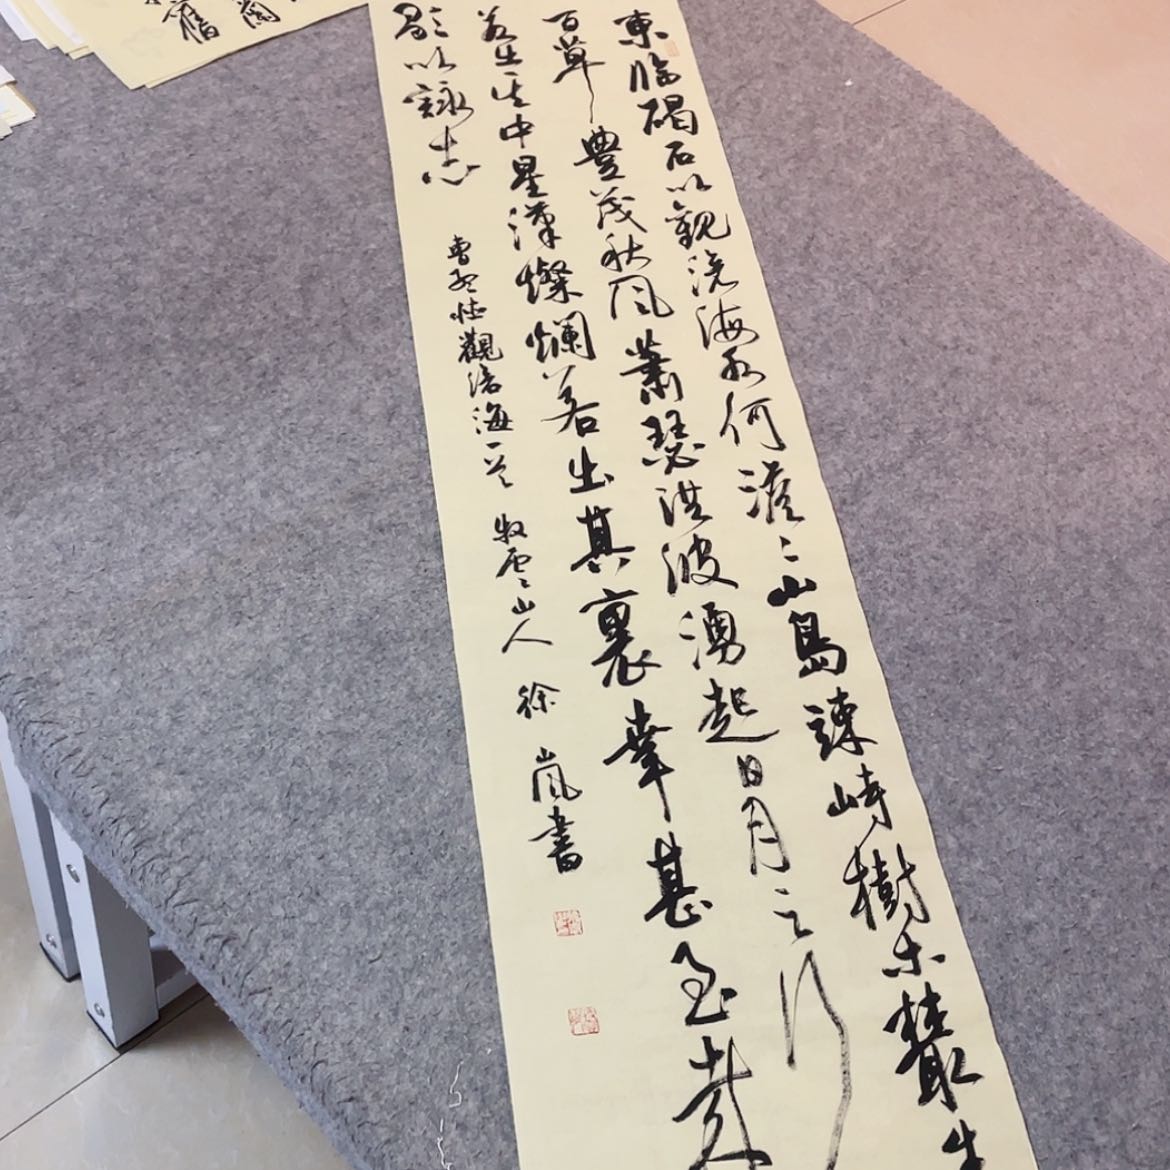 東臨碣石以觀滄海水何澹〻山島竦峙樹木叢生
百草豐茂秋風蕭瑟洪波湧起日月之行
若出其中星漢燦爛若出其裏幸甚至哉
歌以詠志
曹孟德觀滄海一首 牧雲山人 徐嵐書
蘭
舊